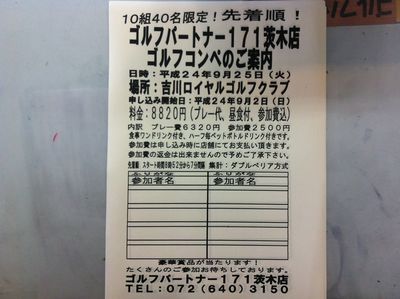 10組40名限定!先着順!
ゴルフパートナー171茨木店
ゴルフコンペのご案内
日時:平成24年9月25日(火)
場所:吉川ロイヤルゴルフクラブ
申し込み開始日:平成24年9月2日(日)
料金:8820円(プレー代、昼食付、参加費込)
内訳 プレー費6320円 参加費2500円
食事ワンドリンク付き、ハーフ毎ペットボトルドリンク付きです。
参加費は申し込み時に店舗にてお支払い頂きます。
参加費の返金は出来ませんので予めご了承下さい。
先着順 スタート時間8時52分から7分間隔 集計:ダブルペリア方式
ふりがな ふりがな
参加者名 参加者名
豪華賞品が当たります!
たくさんのご参加お待ちしております。
ゴルフパートナー171茨木店
TEL:072(640)3150